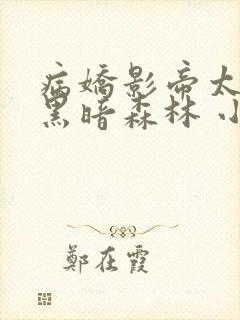 病嬌影帝太
黑暗森林 小
鄭在霞